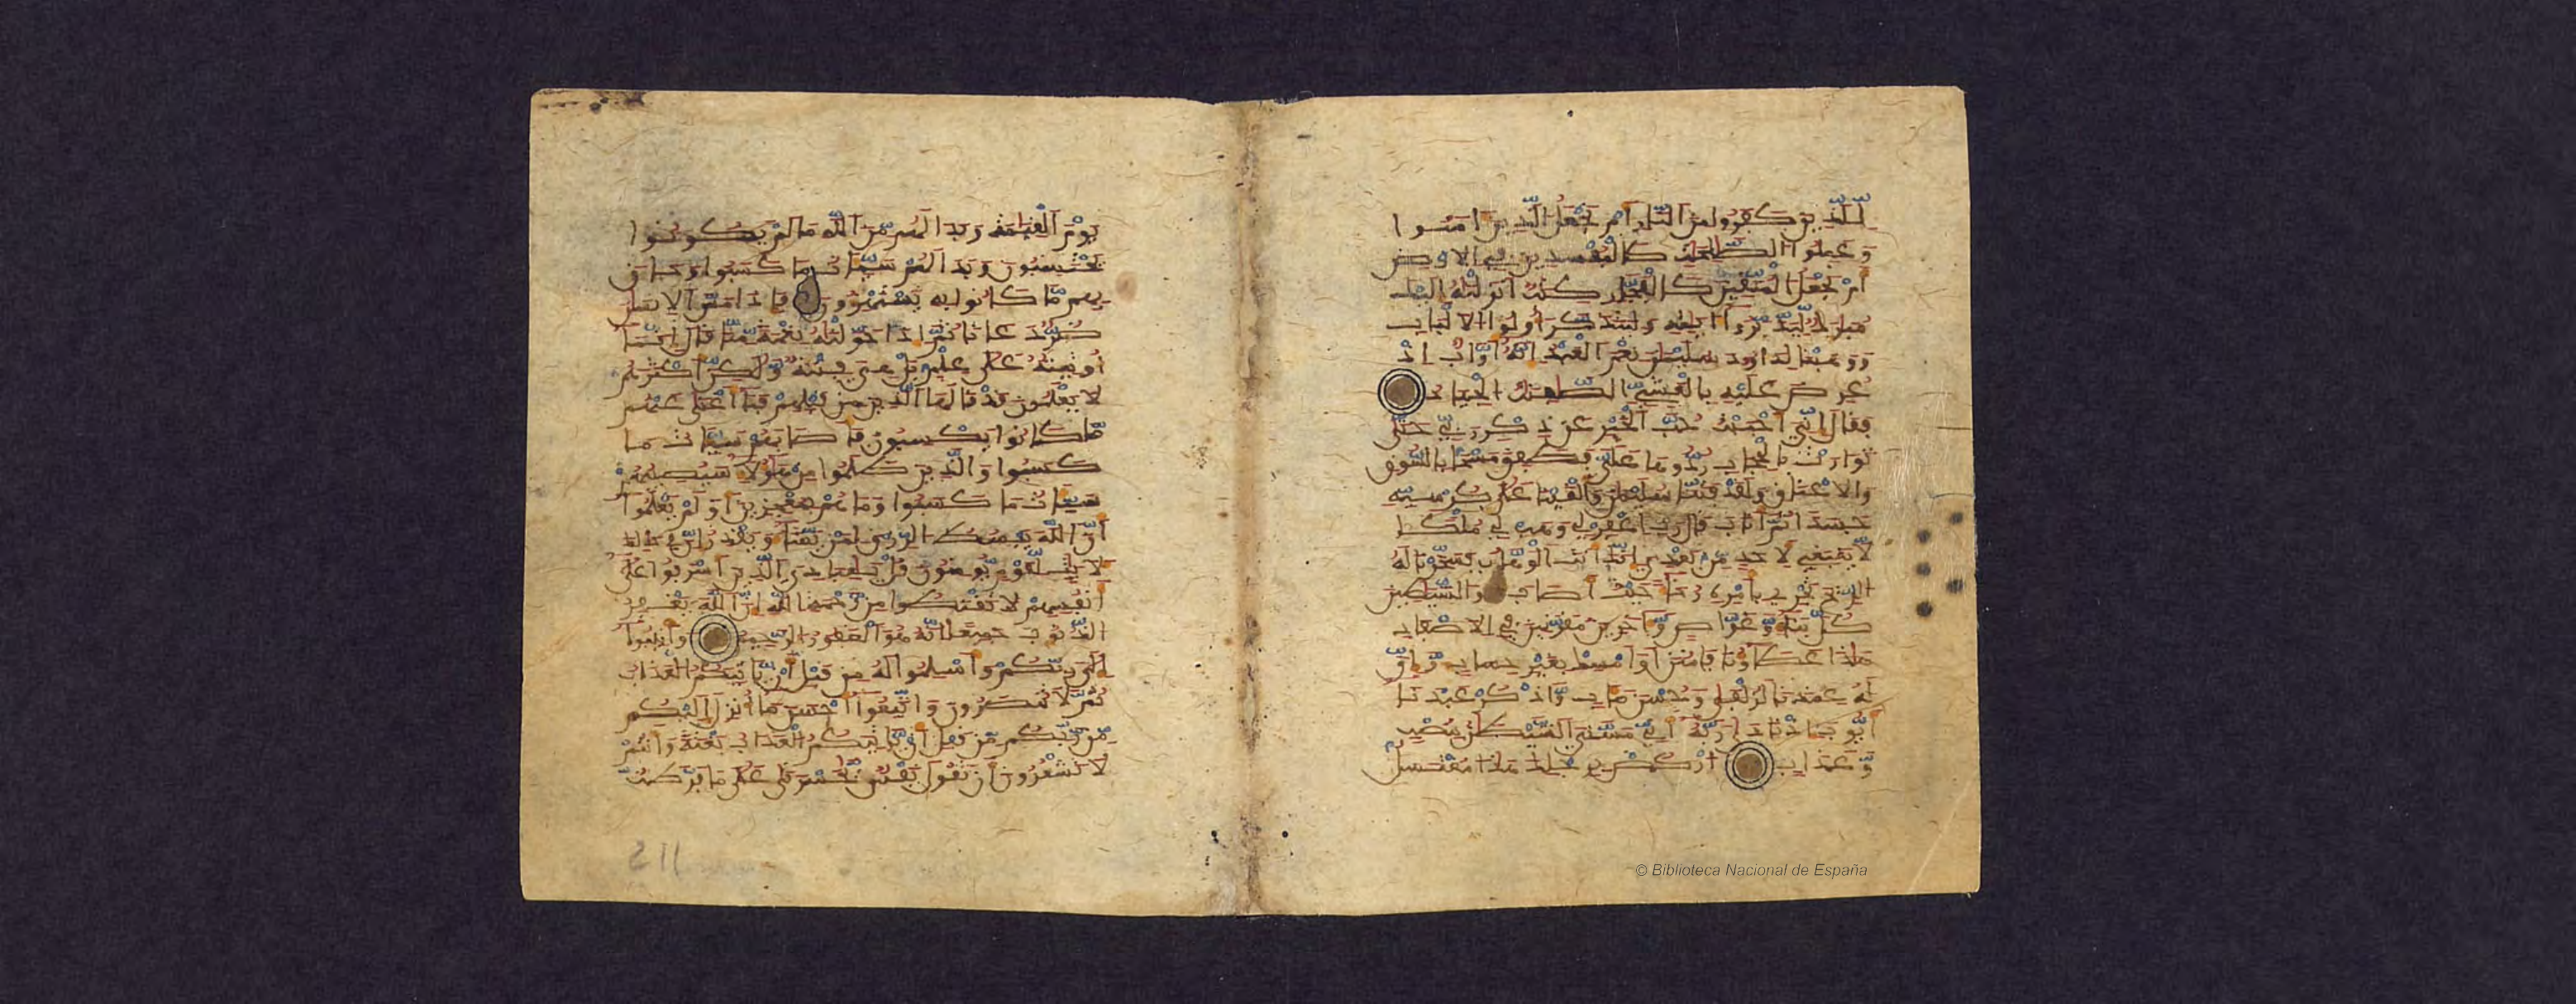 لِّلَّذِينَ كَفَرُوا مِنَ ٱلنَّارِ أَمْ نَجْعَلُ ٱلَّذِينَ ءَامَنُوا
وَعَمِلُوا ٱلصَّٰلِحَٰتِ كَٱلْمُفْسِدِينَ فِي ٱلَارْضِ
أَمْ نَجْعَلُ ٱلْمُتَّقِينَ كَٱلْفُجَّارِ كِتَٰبٌ أَنزَلْنَٰهُ إِلَيْكَ
مُبَٰرَكٌ لِّيَدَّبَّرُوا ءَايَٰتِهِ وَلِيَتَذَكَّرَ أُولُوا ٱلَالْبَٰبِ
وَوَهَبْنَا لِدَاوُدَ سُلَيْمَٰنَ نِعْمَ ٱلْعَبْدُ إِنَّهُ أَوَّابٌ إِذْ
عُرِضَ عَلَيْهِ بِٱلْعَشِيِّ ٱلصَّٰفِنَٰتُ ٱلْجِيَادُ
فَقَالَ إِنِّيَ أَحْبَبْتُ حُبَّ ٱلْخَيْرِ عَن ذِكْرِ رَبِّي حَتَّىٰ
تَوَارَتْ بِٱلْحِجَابِ رُدُّوهَا عَلَيَّ فَطَفِقَ مَسْحًا بِٱلسُّوقِ
وَٱلَاعْنَاقِ وَلَقَدْ فَتَنَّا سُلَيْمَٰنَ وَأَلْقَيْنَا عَلَىٰ كُرْسِيِّهِ
جَسَدًا ثُمَّ أَنَابَ قَالَ رَبِّ ٱغْفِرْ لِي وَهَبْ لِي مُلْكًا
لَّا يَنۢبَغِي لِأَحَدٍ مِّنۢ بَعْدِيَ إِنَّكَ أَنتَ ٱلْوَهَّابُ فَسَخَّرْنَا لَهُ
ٱلرِّيحَ تَجْرِي بِأَمْرِهِ رُخَآءً حَيْثُ أَصَابَ وَٱلشَّيَٰطِينَ
كُلَّ بَنَّآءٍ وَغَوَّاصٍ وَءَاخَرِينَ مُقَرَّنِينَ فِي ٱلَاصْفَادِ
هَٰذَا عَطَآؤُنَا فَٱمْنُنَ أَوَ ٱمْسِكْ بِغَيْرِ حِسَابٍ وَإِنَّ
لَهُ عِندَنَا لَزُلْفَىٰ وَحُسْنَ مَـَٔابٍ وَٱذْكُرْ عَبْدَنَا
أَيُّوبَ إِذْ نَادَىٰ رَبَّهُ أَنِّي مَسَّنِيَ ٱلشَّيْطَٰنُ بِنُصْبٍ
وَّعَذَابٍ ٱرْكُضْ بِرِجْلِكَ هَٰذَا مُغْتَسَلٌ
يَوْمَ ٱلْقِيَٰمَةِ وَبَدَا لَهُم مِّنَ ٱللَّهِ مَا لَمْ يَكُونُوا
يَحْتَسِبُونَ وَبَدَا لَهُمْ سَيِّـَٔاتُ مَا كَسَبُوا وَحَاقَ
بِهِم مَّا كَانُوا بِهِ يَسْتَهْزِءُونَ فَإِذَا مَسَّ ٱلِانسَٰنَ
ضُرٌّ دَعَانَا ثُمَّ إِذَا خَوَّلْنَٰهُ نِعْمَةً مِّنَّا قَالَ إِنَّمَآ
أُوتِيتُهُ عَلَىٰ عِلْمٍ بَلْ هِيَ فِتْنَةٌ وَلَٰكِنَّ أَكْثَرَهُمْ
لَا يَعْلَمُونَ قَدْ قَالَهَا ٱلَّذِينَ مِن قَبْلِهِمْ فَمَآ أَغْنَىٰ عَنْهُم
مَّا كَانُوا يَكْسِبُونَ فَأَصَابَهُمْ سَيِّـَٔاتُ مَا
كَسَبُوا وَٱلَّذِينَ ظَلَمُوا مِنْ هَٰٓؤُلَآءِ سَيُصِيبُهُمْ
سَيِّـَٔاتُ مَا كَسَبُوا وَمَا هُم بِمُعْجِزِينَ أَوَلَمْ يَعْلَمُوا
أَنَّ ٱللَّهَ يَبْسُطُ ٱلرِّزْقَ لِمَن يَشَآءُ وَيَقْدِرُ إِنَّ فِي ذَٰلِكَ
لَأٓيَٰتٍ لِّقَوْمٍ يُومِنُونَ قُلْ يَٰعِبَادِيَ ٱلَّذِينَ أَسْرَفُوا عَلَىٰٓ
أَنفُسِهِمْ لَا تَقْنَطُوا مِن رَّحْمَةِ ٱللَّهِ إِنَّ ٱللَّهَ يَغْفِرُ
ٱلذُّنُوبَ جَمِيعًا إِنَّهُ هُوَ ٱلْغَفُورُ ٱلرَّحِيمُ وَأَنِيبُوا
إِلَىٰ رَبِّكُمْ وَأَسْلِمُوا لَهُ مِن قَبْلِ أَن يَاتِيَكُمُ ٱلْعَذَابُ
ثُمَّ لَا تُنصَرُونَ وَٱتَّبِعُوا أَحْسَنَ مَآ أُنزِلَ إِلَيْكُم
مِّن رَّبِّكُم مِّن قَبْلِ أَن يَاتِيَكُمُ ٱلْعَذَابُ بَغْتَةً وَأَنتُمْ
لَا تَشْعُرُونَ أَن تَقُولَ نَفْسٌ يَٰحَسْرَتَىٰ عَلَىٰ مَا فَرَّطتُ
211
© Biblioteca Nacional de España